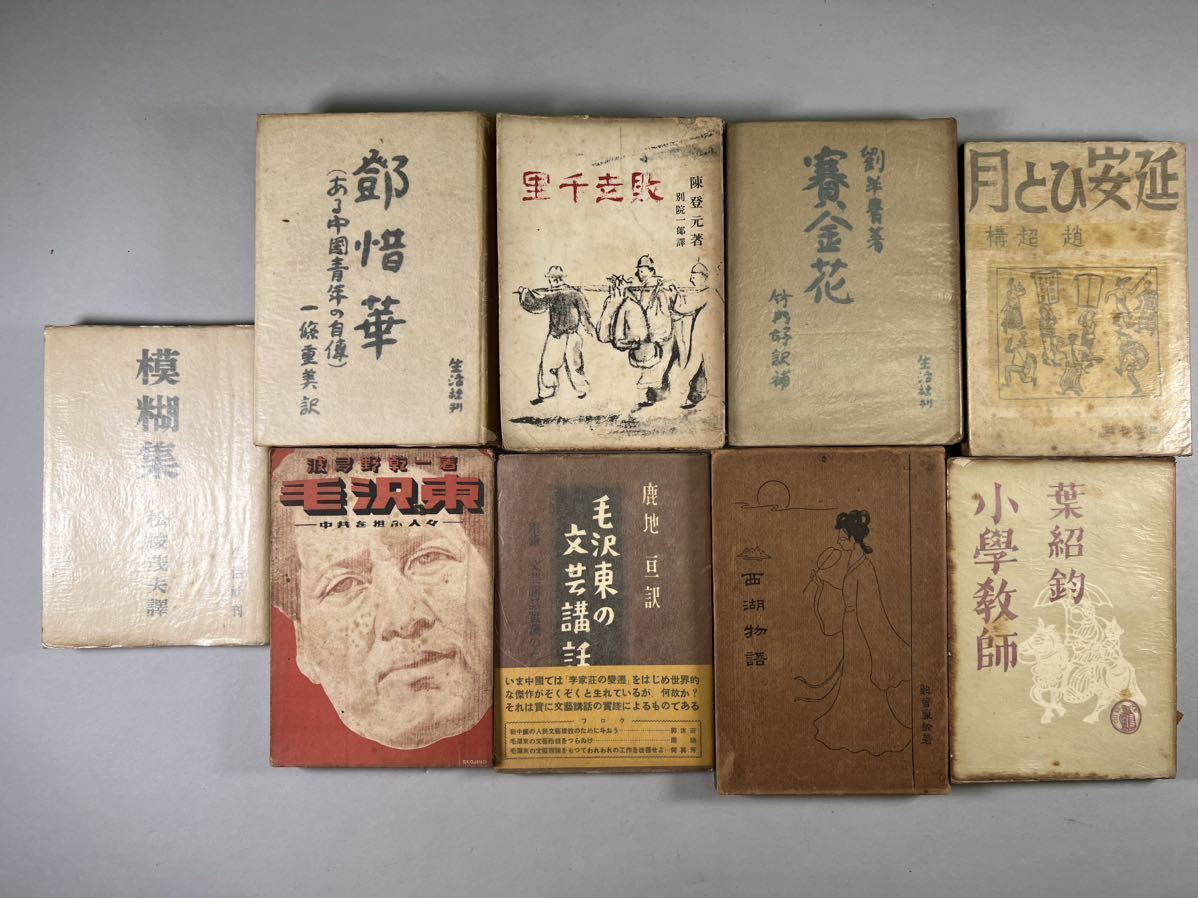 鄧惜華
(ある中國青年の自傳)
一條重美訳
生活社刊
敗走千里
陳登元著
別院一郎譯
劉半農著
賽金花
竹内好訳補
生活社刊
延安ひと月
趙超構
模糊集
松枝茂夫譯
波多野乾一著
毛沢東
中共を担ふ人々
鹿地亘訳
毛沢東の
文芸講話
いま中國では「李家荘の變遷」をはじめ世界的
な傑作がぞくぞくと生れているが、何故か?
それは實に文藝講話の實踐によるものである
フロク
西湖物語
葉紹鈞
小學教師